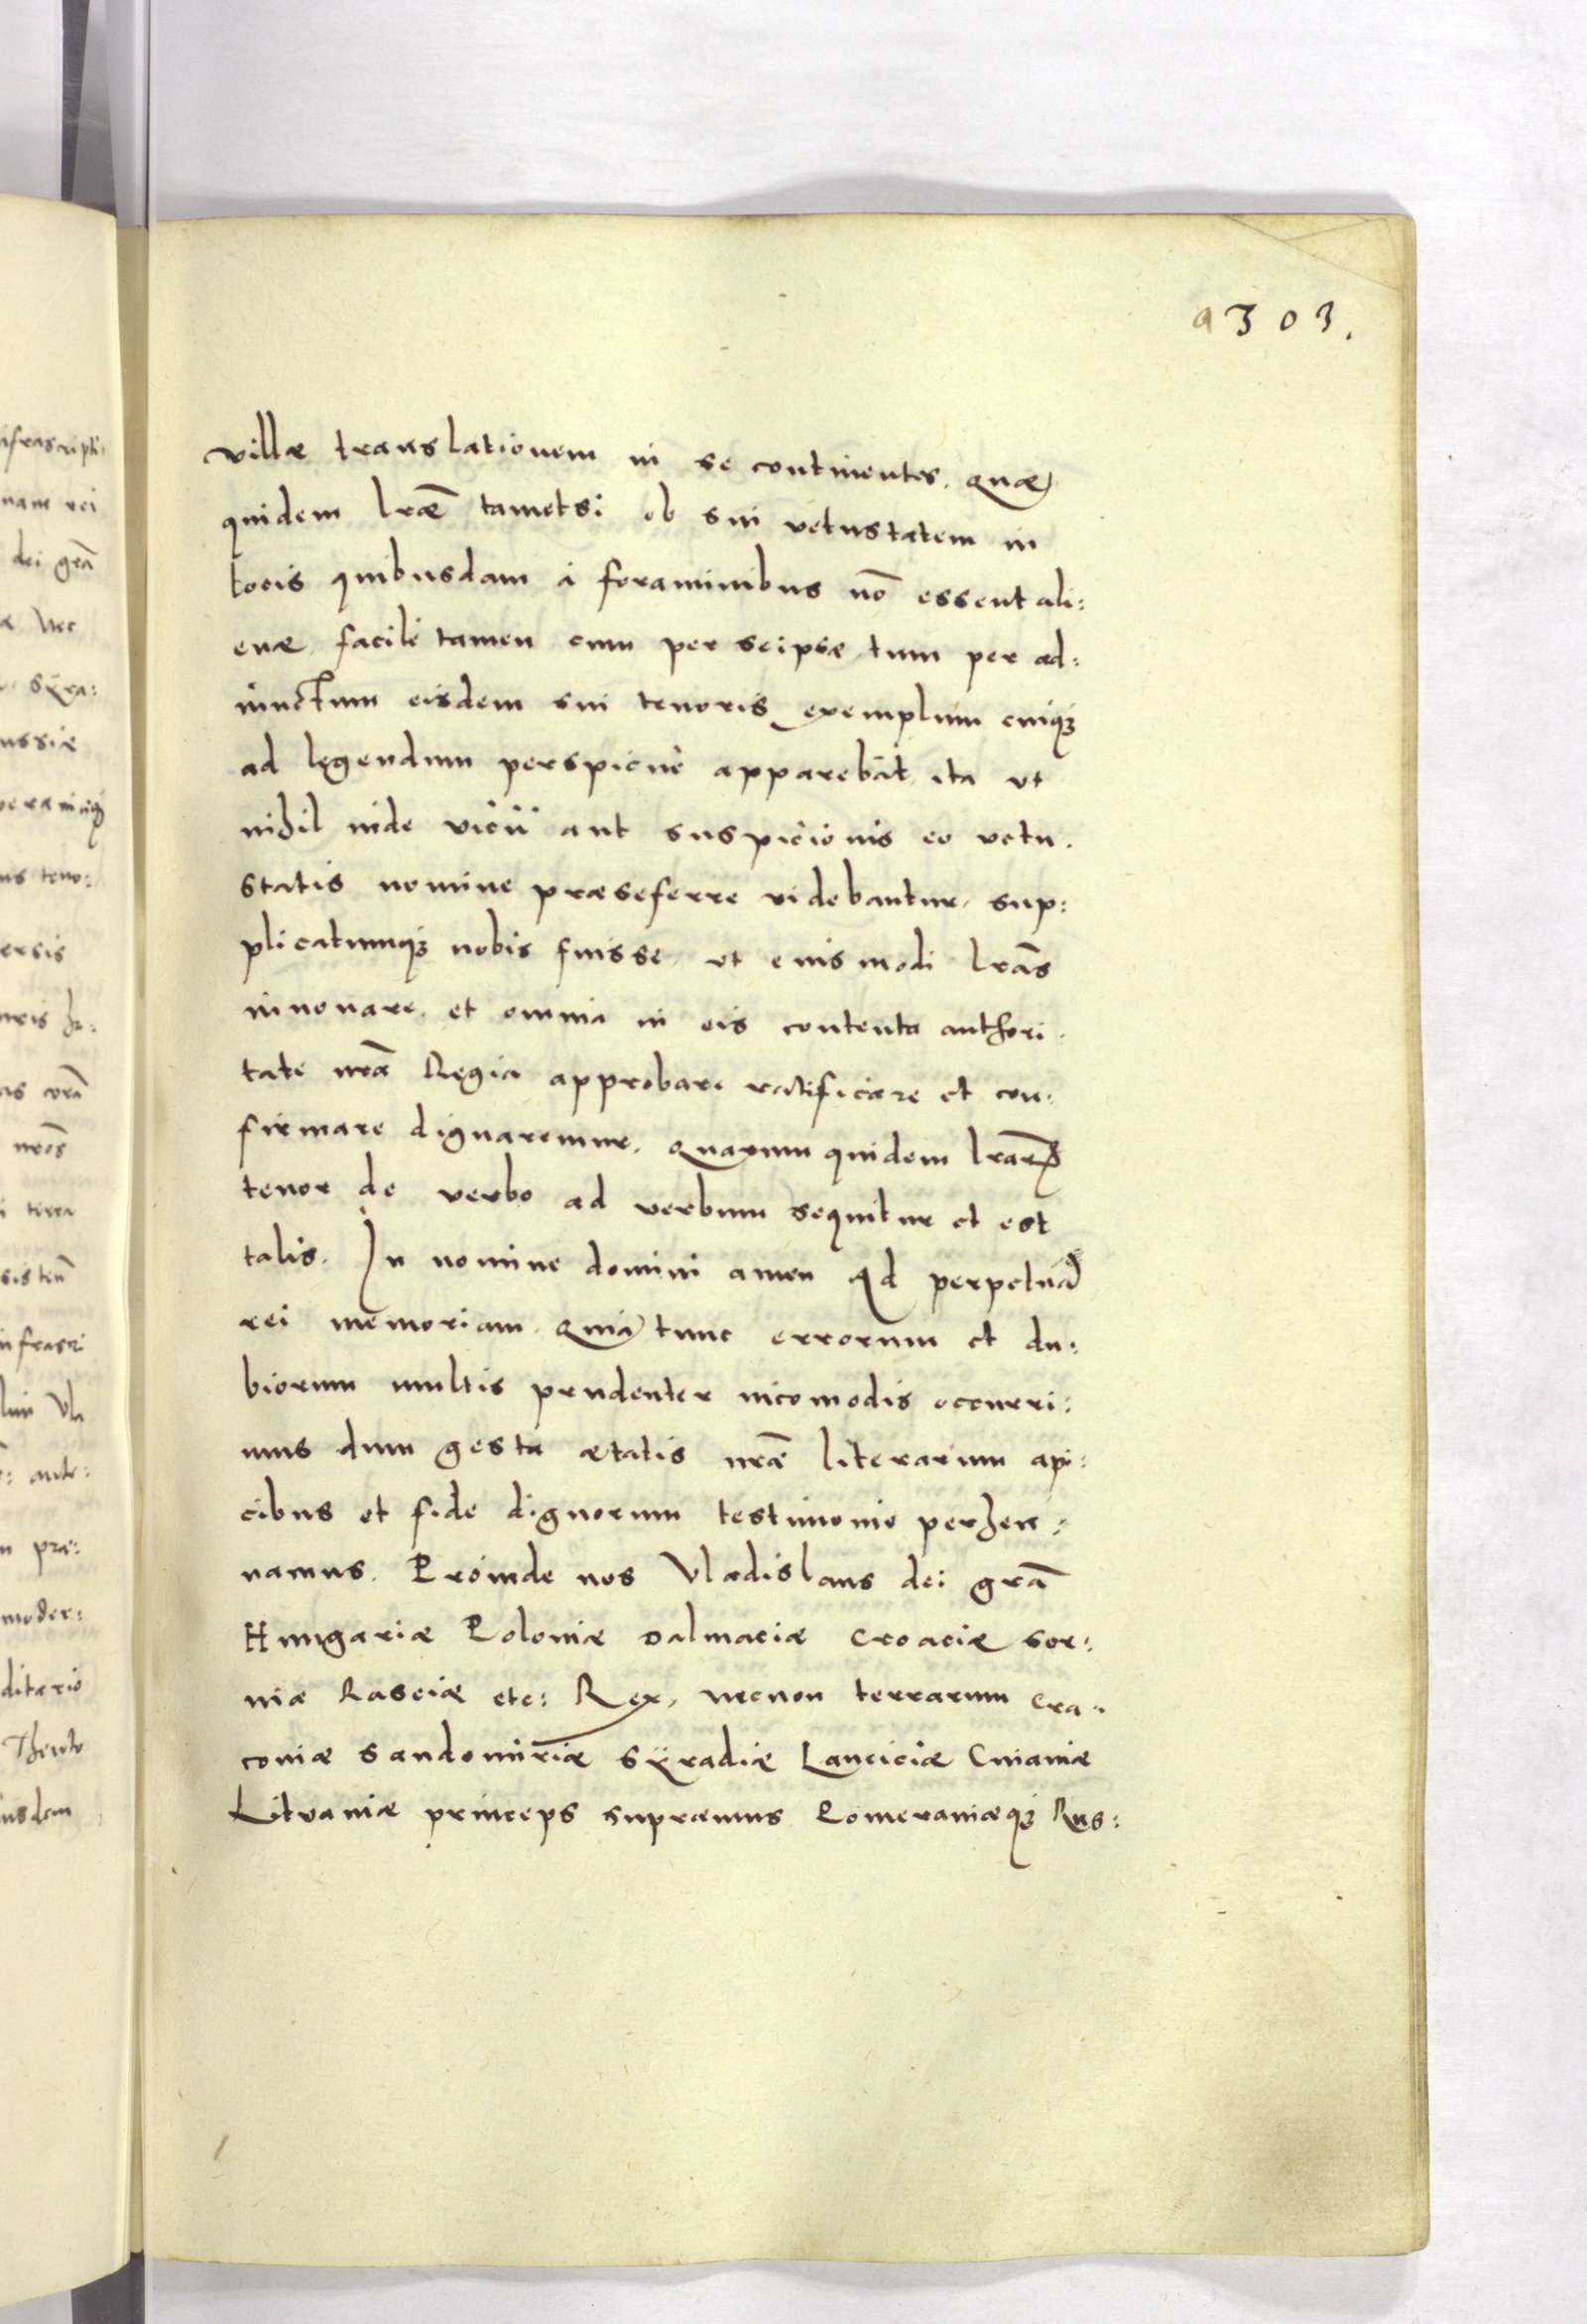 303.
villæ translationem in se continentes. Quæ
quidem lræ̃ tametsi ob sui vetustatem in
locis quibusdam à foraminibus nõ essent ali:
enæ facilè tamen cum per seipsæ tum per ad:
iunctum eisdem sui tenoris exemplum cuiqꝫ
ad legendum perspicuè apparebãt ita ut
nihil inde vicii aut suspicionis eo vetu.
statis nomine præseferre videbantur, sup:
plicatumqꝫ nobis fuisse, ut eiusmodi lrãs
innovare. et omnia in eis contenta authori.
tate nrã Regia approbare ratificare et con:
firmare dignaremur. Quarum quidem lrarꝝ
tenor de verbo ad verbum sequitur et est
talis. In nomine domini amen Ad perpetuã
rei memoriam. Quia tunc errorum et du:
biorum multis prudenter incomodis occurri:
mus dum gesta ætatis nræ̃ literarum api:
cibus et fide dignorum testimonio perhen:
namus. Proinde nos Vladislaus dei grã
Hungariæ Poloniæ Dalmaciæ Croaciæ Ser:
viæ Rasciæ etc: Rex, necnon terrarum Cra:
coviæ Sandomiriæ Syradiæ Lanciciæ Cuiaviæ
Litvaniæ princeps supræmus Pomeraniæqꝫ Rus:
ifrascripti
nam rei
dei grã
Nec
syra:
ussiæ
us teno:
ersis
nrõs
terra
infrasri
Vla
ante:
præ:
moder:
ditario
Theuto
usdem